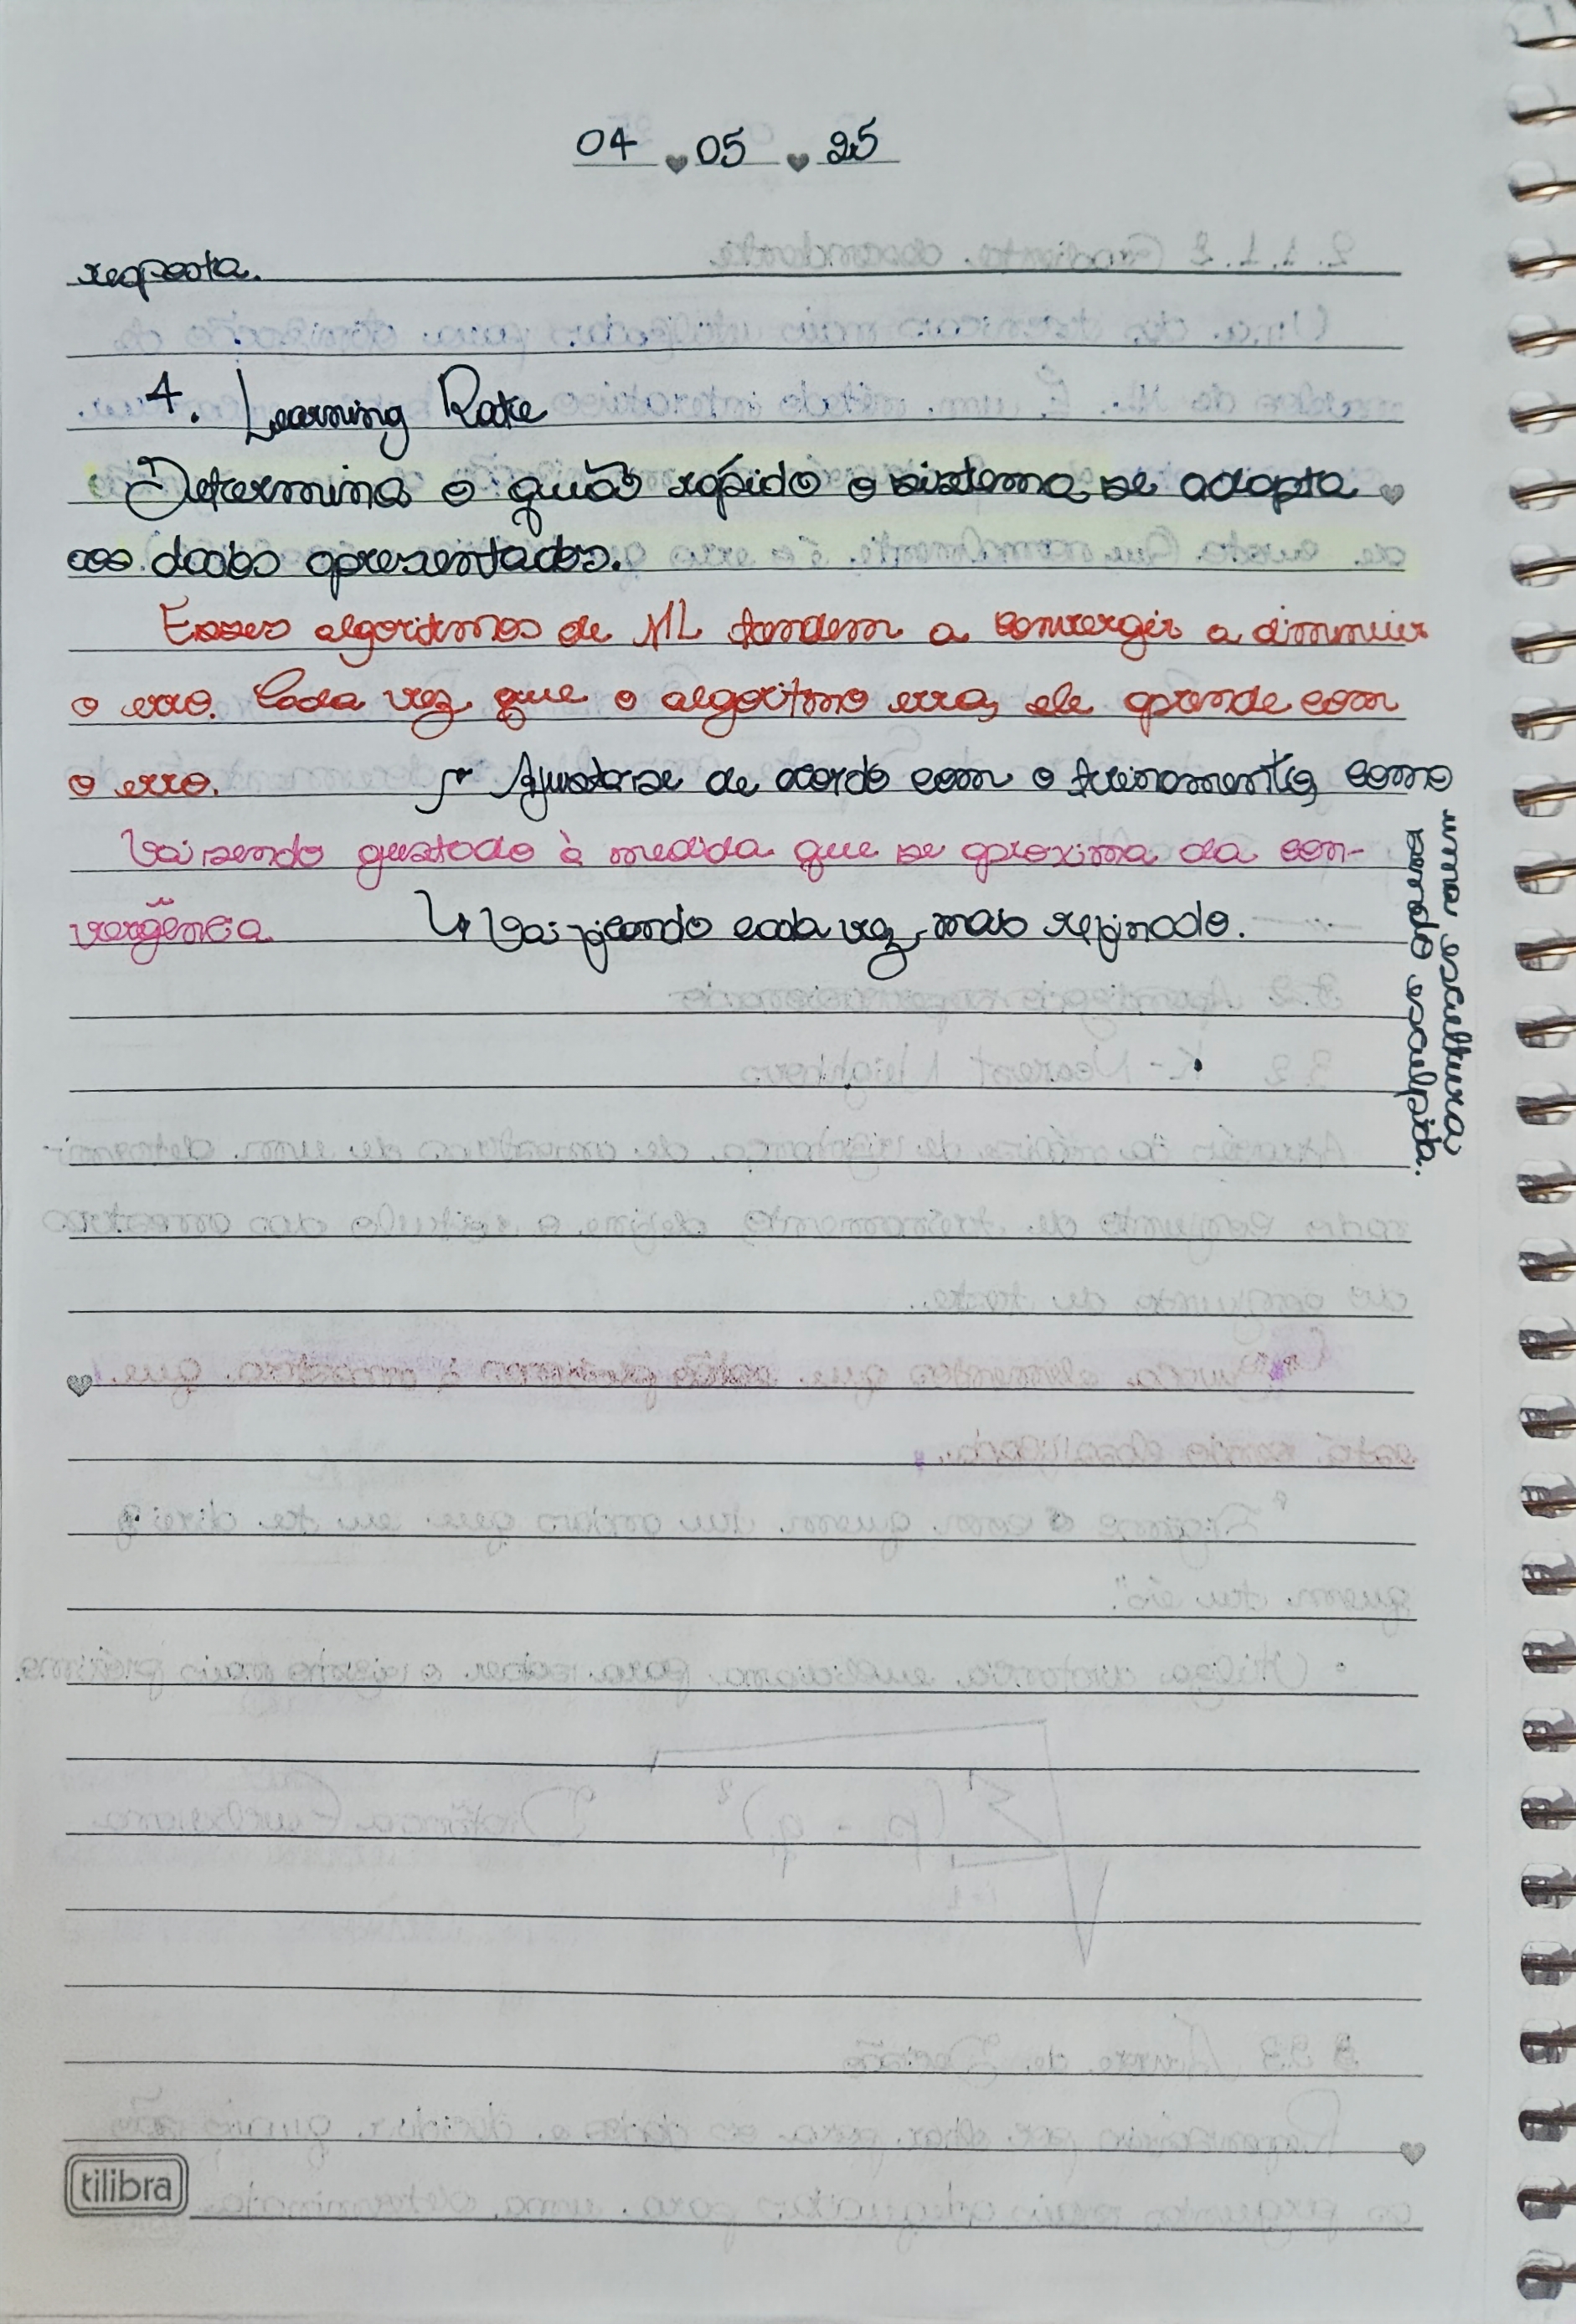 04 05 25
resposta.
4. Learning Rate
Determina o quão rápido o sistema se adapta
aos dados apresentados.
Esses algoritmos de ML tendem a convergir a diminuir
o erro. Cada vez que o algoritmo erra, ele aprende com
o erro. Ajusta-se de acordo com o treinamento, como
numa escultura
sendo esculpida.
Vai sendo ajustado à medida que se aproxima da con-
vergência
Vai ficando cada vez mais refinado.
tilibra